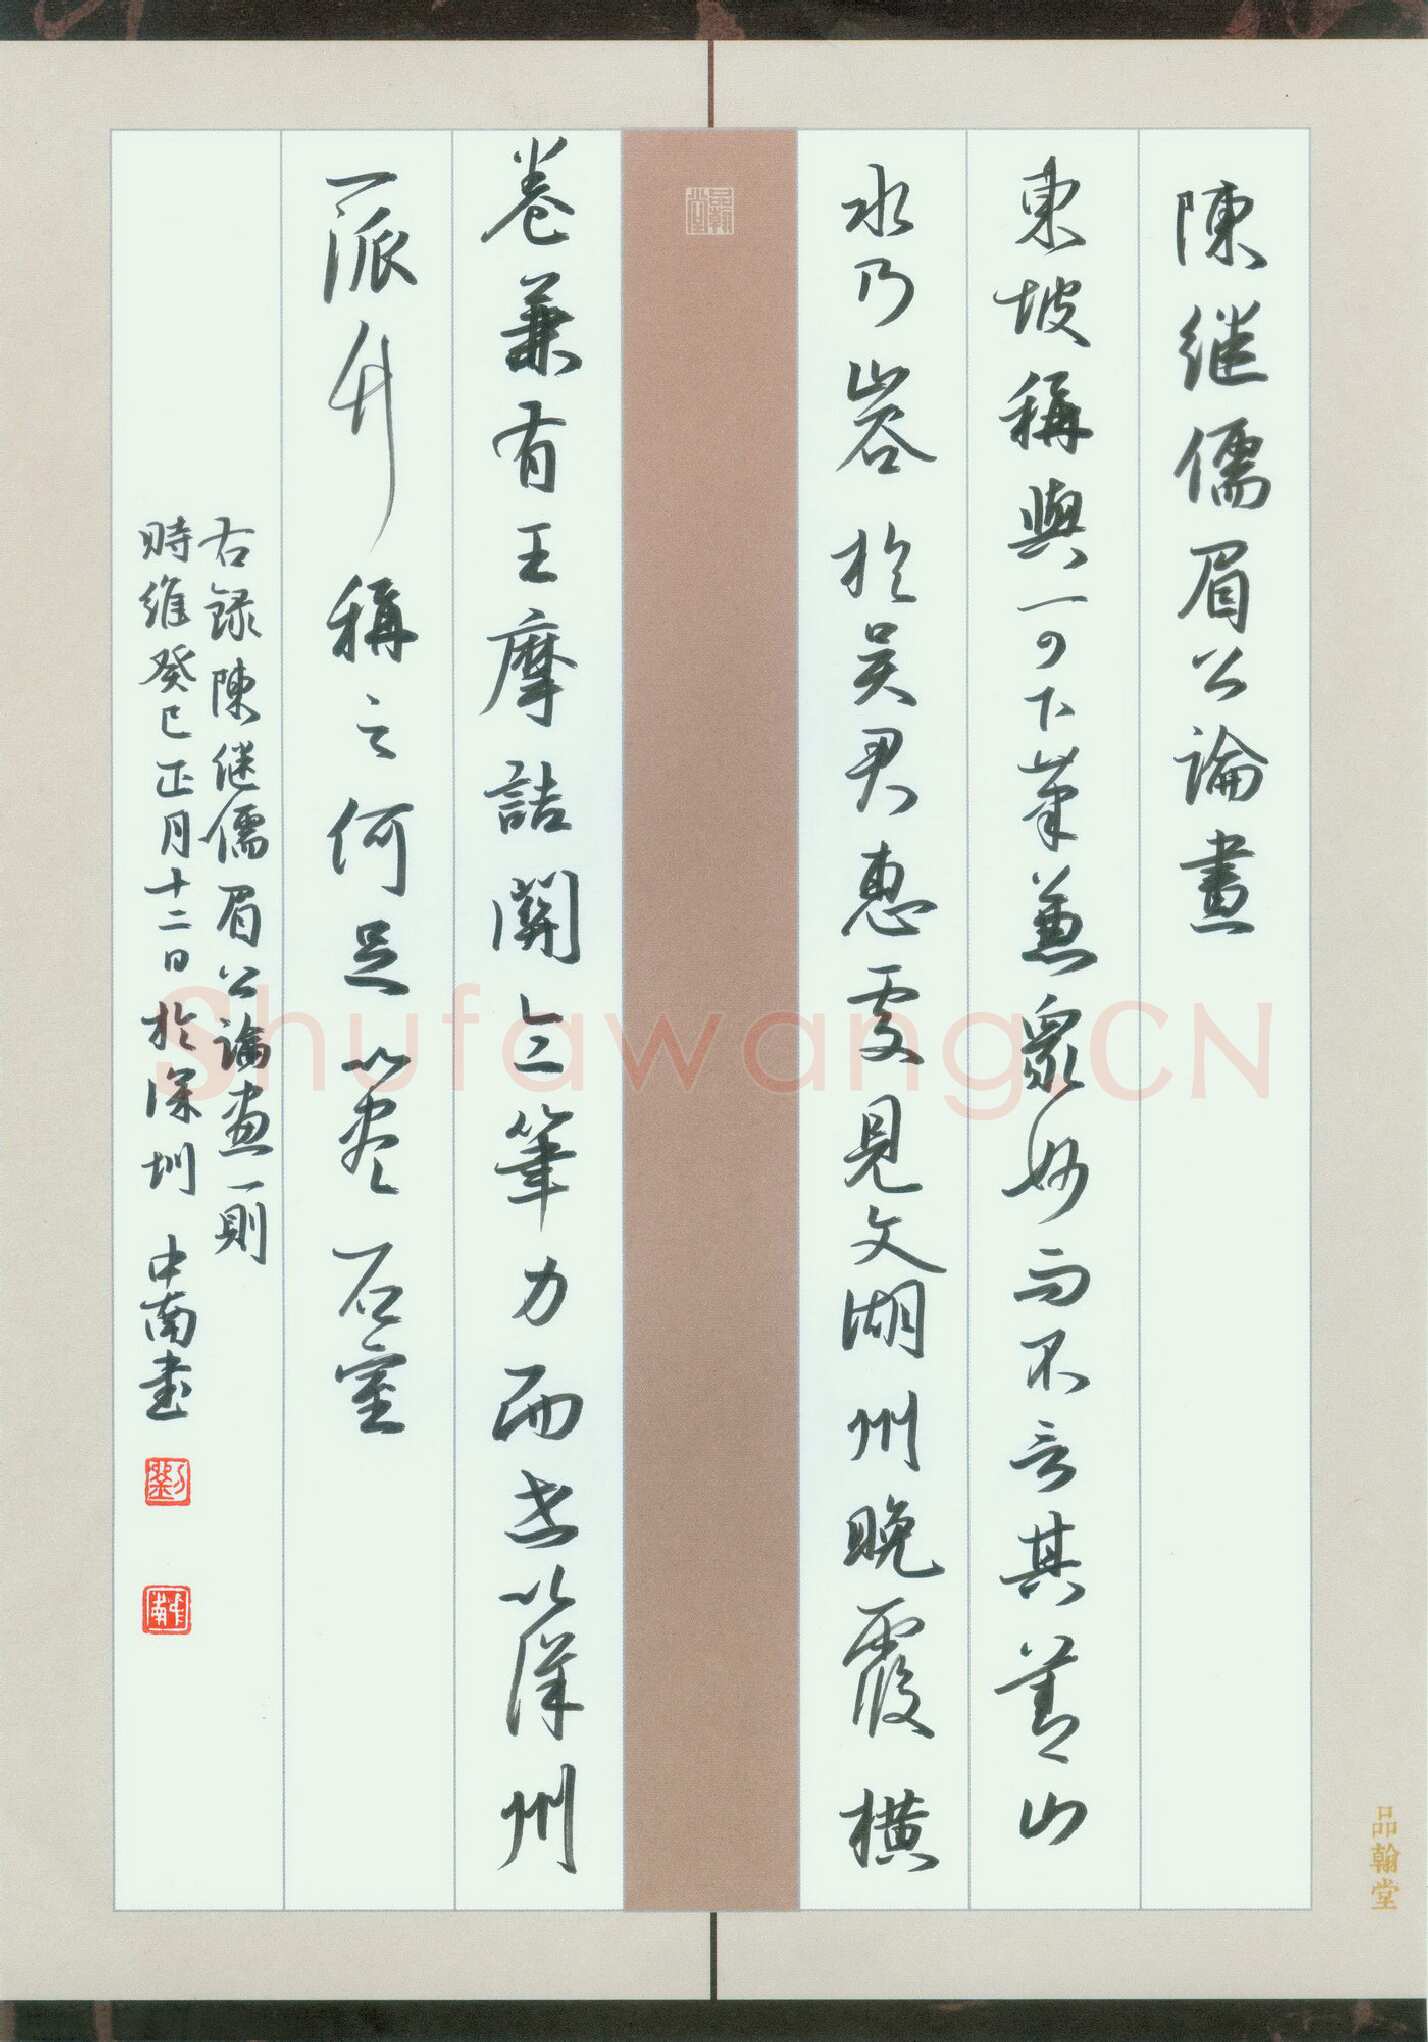 陳继儒眉公論畫
東坡稱與可下筆兼眾妙而不言其善山
水乃峉於吴君惠处見文湖州晚霞橫
卷兼有王摩詰關仝筆力而世以洋州
一派竹稱之何足以盡石室
右録陳继儒眉公論畫一則
時維癸巳正月十二日於深圳 中南書
劉
中南
品翰堂
品翰堂
Shufawang.CN